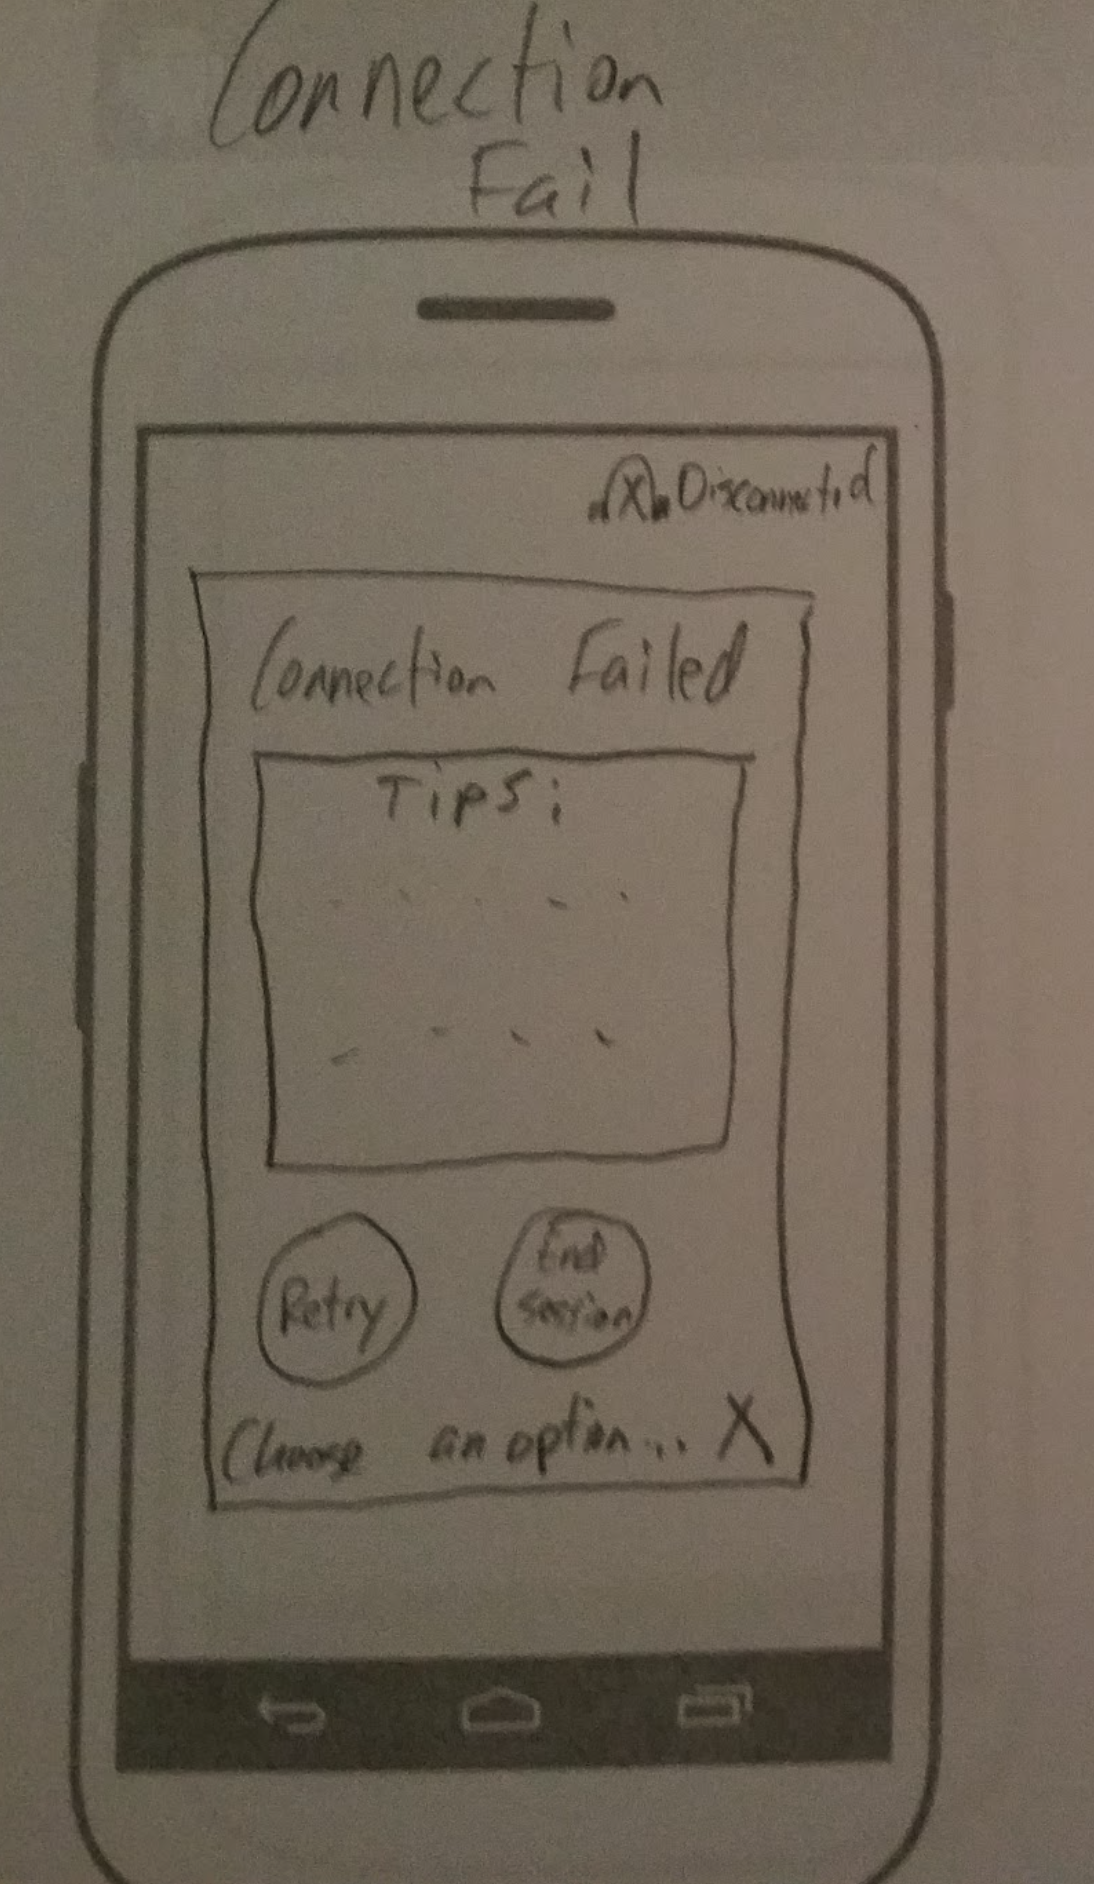 Connection
Fail
Disconnected
Connection Failed
Tips:
Retry
End
session
Choose an option... X